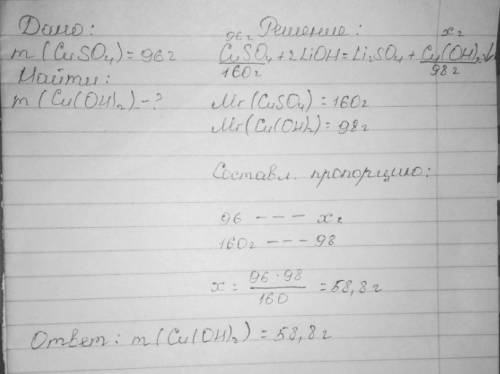 Дано:
m(CuSO₄)=96г
Найти:
m(Cu(OH)₂)-?
Решение:
96г x г
CuSO₄+2LiOH=Li₂SO₄+Cu(OH)₂↓
160г 98г
Mr(CuSO₄)=160г
Mr(Cu(OH)₂)=98г
Составл. пропорцию:
96 --- xг
160г --- 98
x = 96·98 / 160 = 58,8г
Ответ: m(Cu(OH)₂)=58,8г